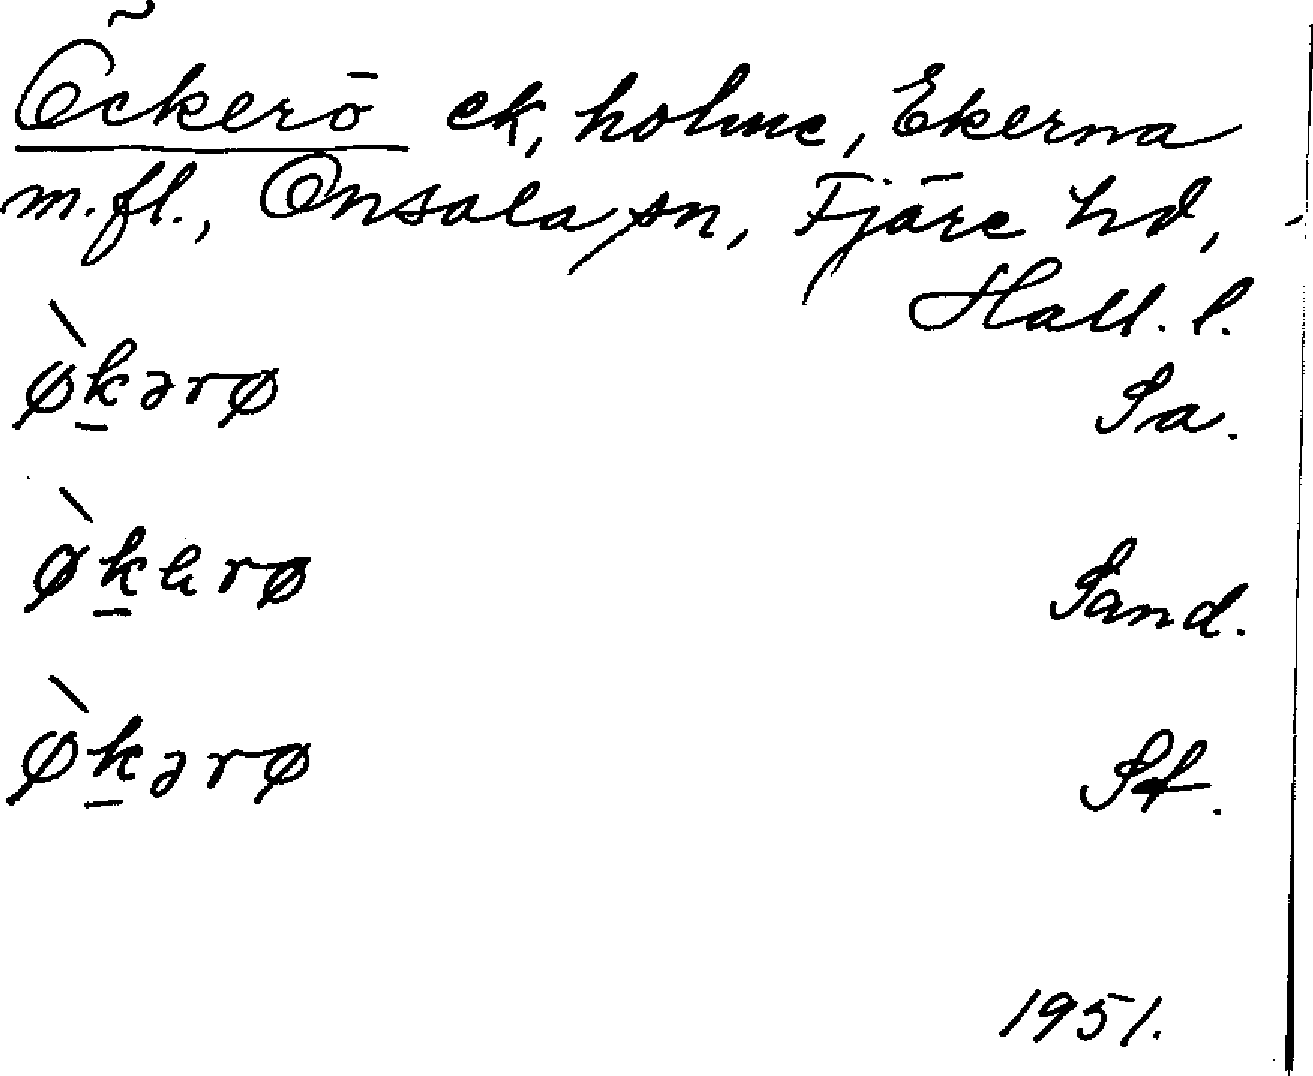 Öckerö ek, holme, Ekerna
m.fl., Onsala sn, Fjäre hd,
Hall. l.
ø̀k̲ərø Sa.
ø̀k̲erø Sand.
ø̀k̲ərø St.
1951.